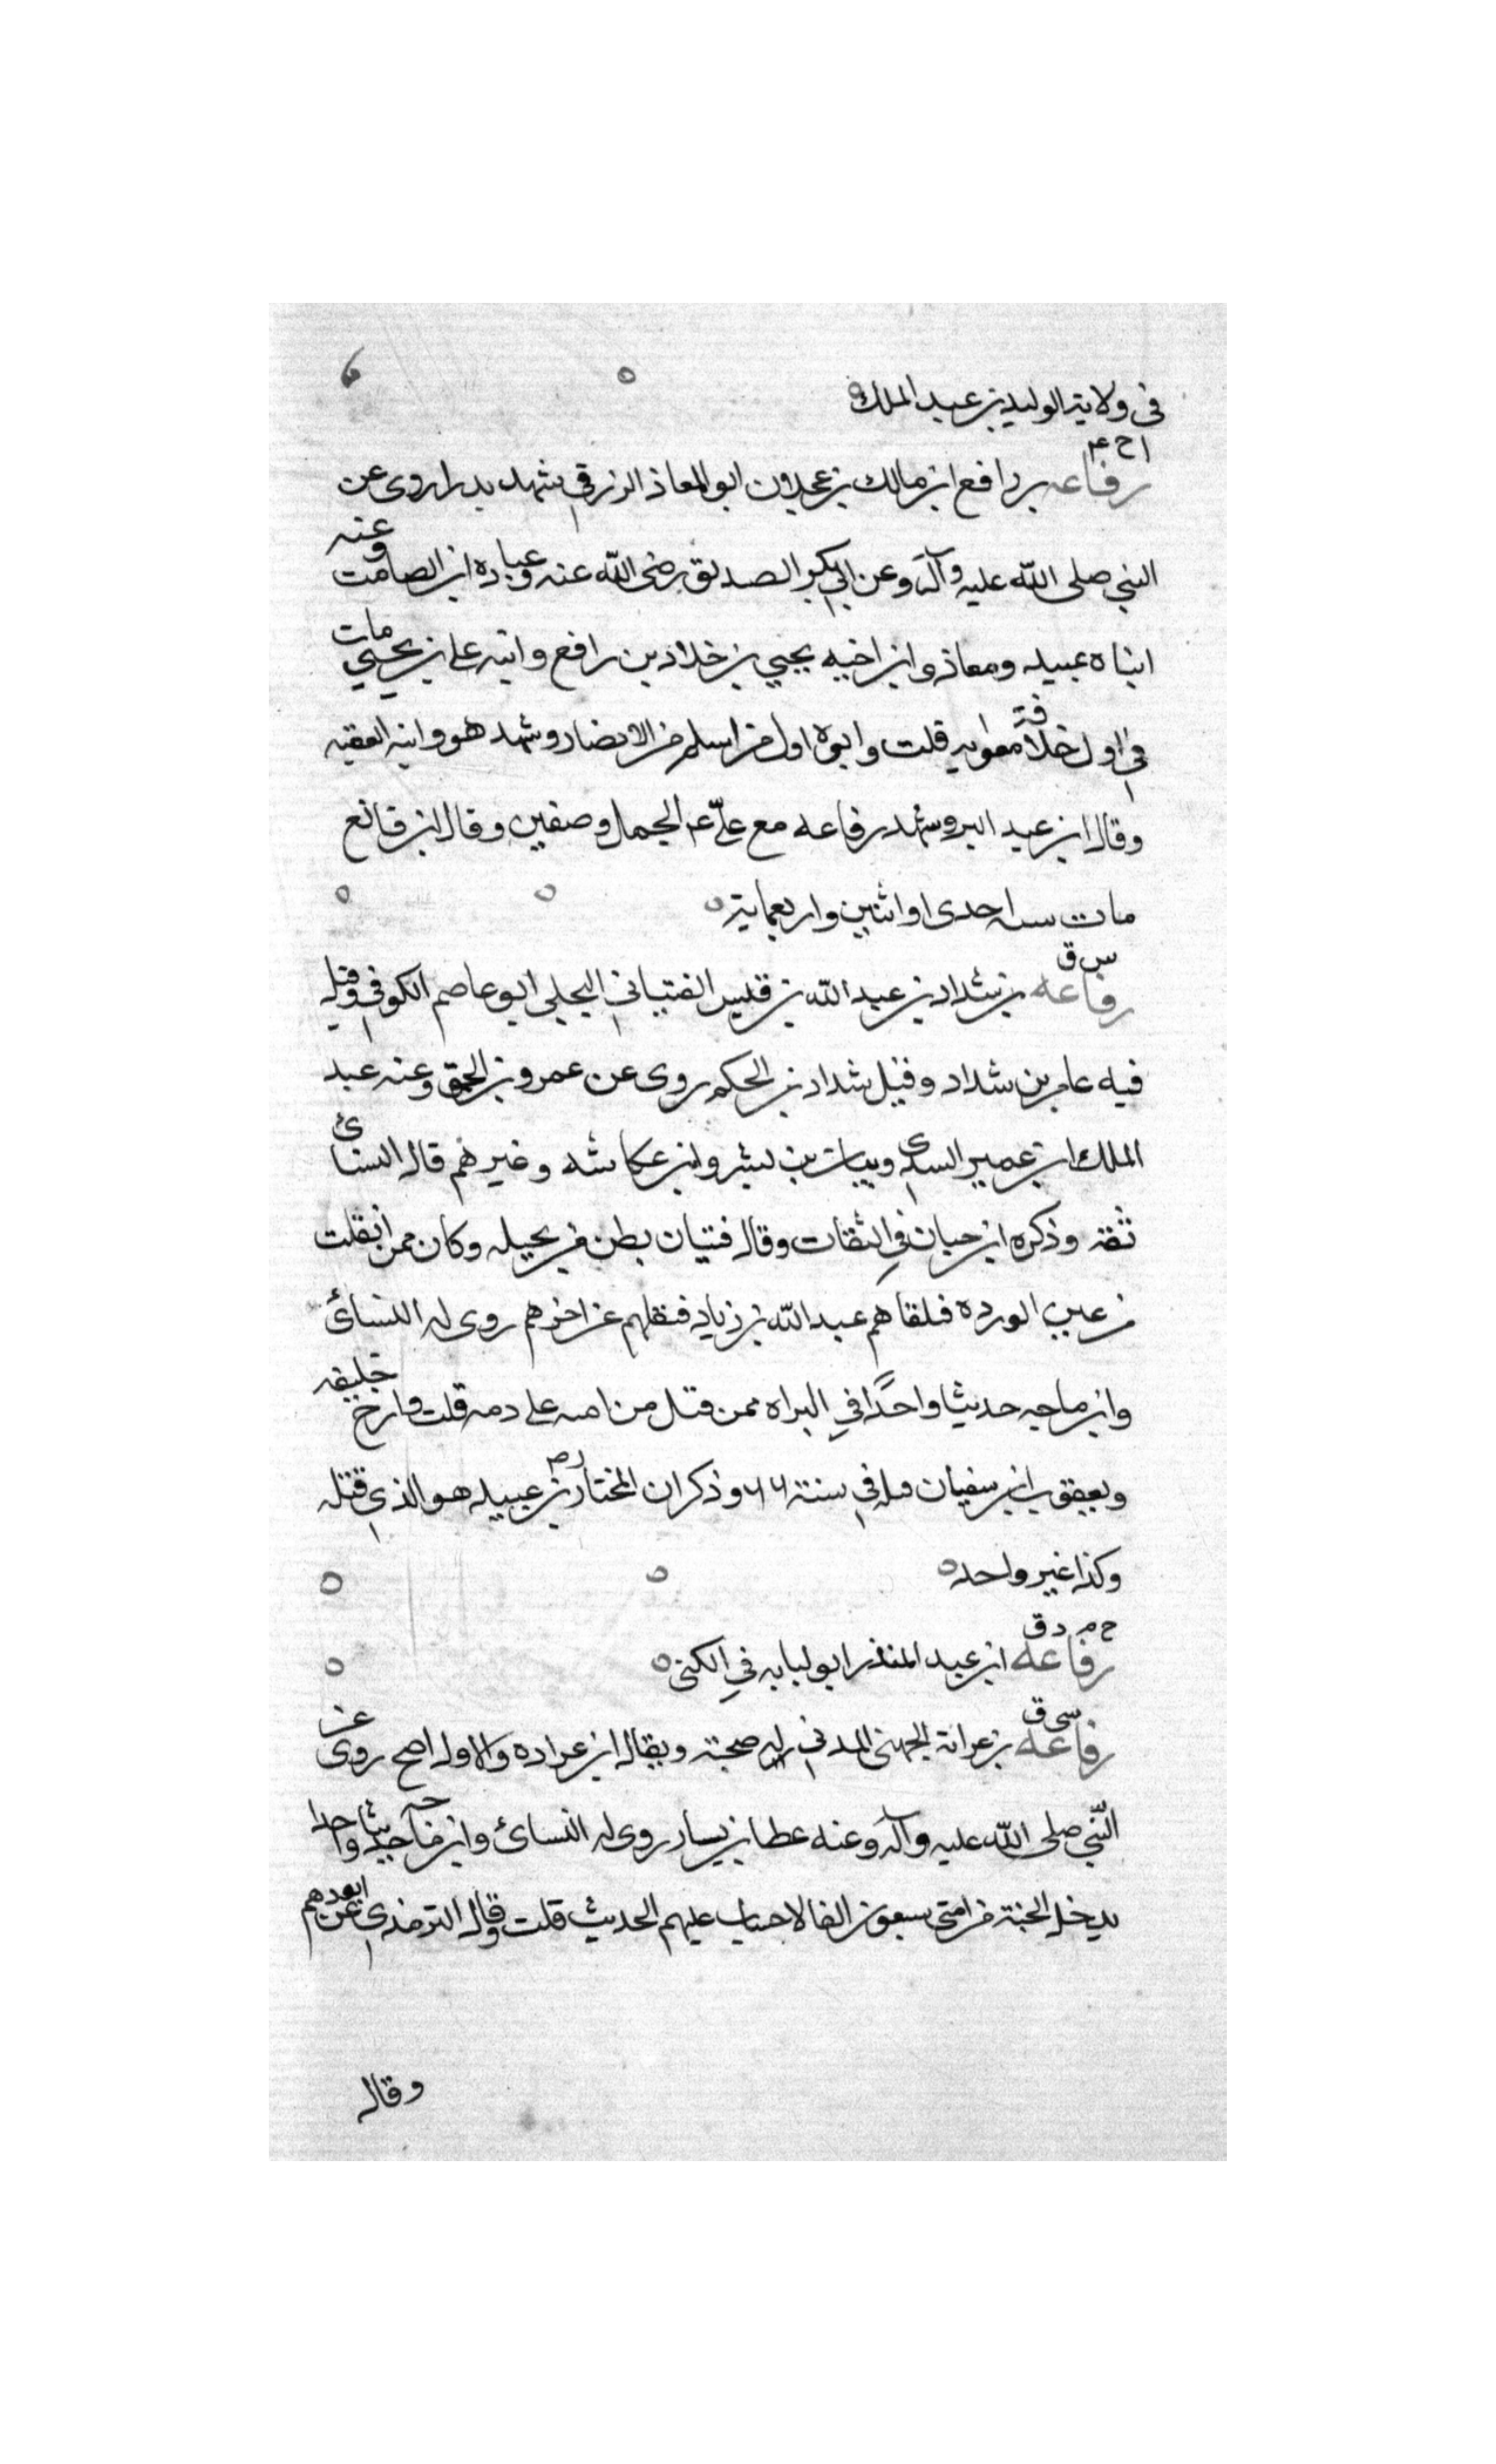 فى ولاية الوليد بن عبد الملك
ا ح ۴
رفاعه بن رافع ابن مالك بن عجلان ابو المعاذ الزرقي شهد بدرا روى عن
النبي صلى الله عليه وآله وعن ابي بكر الصديق رضى الله عنه وعباده ابن الصامت وعنه
ابناه عبيد ومعاذ وابن اخيه يحيي بن خلاد بن رافع وابنه علي بن يحيي مات
في اول خلافة معاويه قلت وابوه اول من اسلم من الانصار وشهد هو وابنه العقبه
وقال ابن عبد البر وشهد رفاعه مع علي عم الجمل وصفين وقال ابن قانع
مات سنه احدى او اثنين واربعماية
س ق
رفاعه بن شداد بن عبد الله بن قيس الفتياني البجلي ابو عاصم الكوفي وقيل
فيه عامر بن شداد وقيل شداد بن الحكم روى عن عمرو بن الحمق وعنه عبد
الملك ابن عمير السدى وبيان بن بشر وابن عكاشه وغيرهم قال النسائ
ثقة وذكره ابن حبان في الثقات وقال فتيان بطن من بجيله وكان ممن انفلت
من عين الورده فلقاهم عبد الله بن زياد فقتلهم عن اخرهم روى له النسائ
وابن ماجه حديثا واحدًا في البراه ممن قتل من امنه على دمه قلت وارخ خليفه
ويعقوب ابن سفيان قتله في سنة ٦٦ وذكر ان المختار بن عبيد هو الذي قتله
وكذا غير واحد
خ م د ق
رفاعه ابن عبد المنذر ابو لبابه في الكنى
سى ق
رفاعه بن عرابة الجهنى المدني له صحبة ويقال ابن عراده والاول اصح روى عن
النّبي صلى الله عليه وآله وعنه عطا بن يسار روى له النسائ وابن ماجه حديثا واحدا
يدخل الجنة من امتى سبعون الفا لا حساب عليهم الحديث قلت وقال الترمذي
وقال